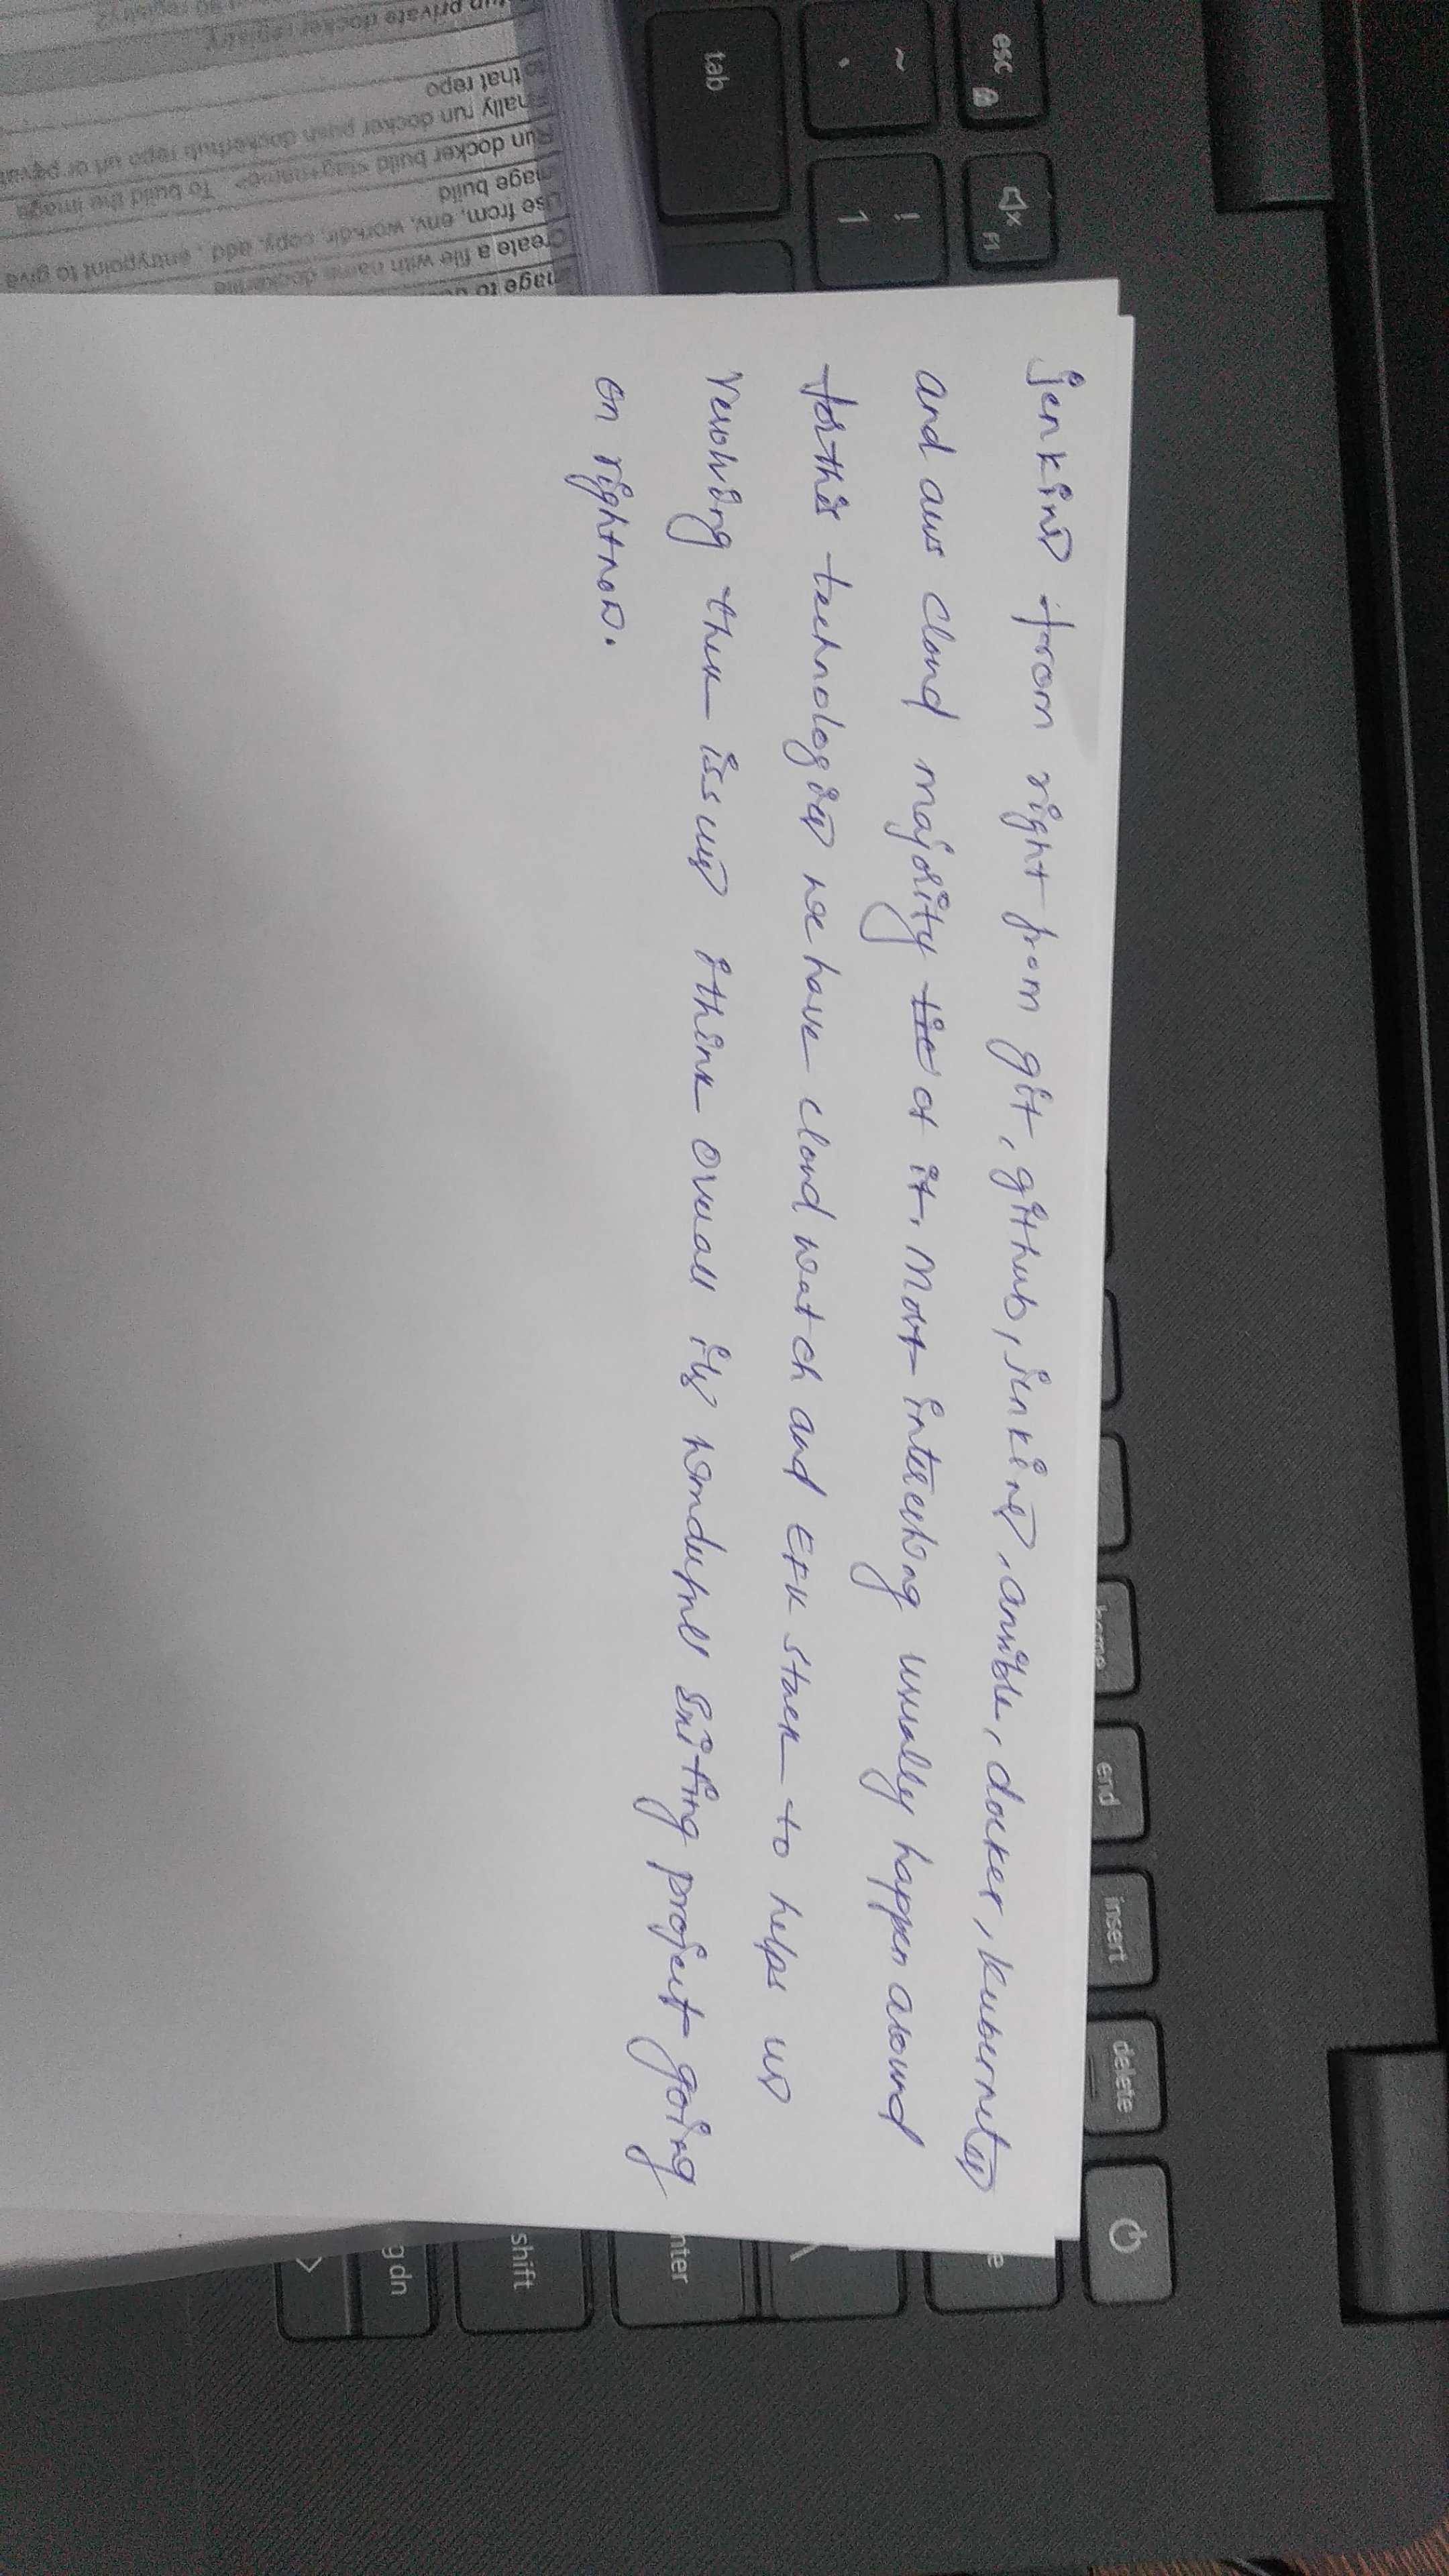 jenkins from right from git, github, jenkins, ansible, docker, Kubernetes
and aws cloud majority of it. Most interesting usually happen around
for this technologies we have cloud watch and EFK stack to helps us
resolving these issues i think overall its wonderfull Exiting project going
on rightnow.
esc
F1
~
!
1
tab
home
end
insert
delete
shift
g dn
Create a file with name dockerfile
Use from, env, workdir, copy, add, entrypoint to give
mage build
Run docker build To build the image
Finally run docker push dockerhub repo
to that repo